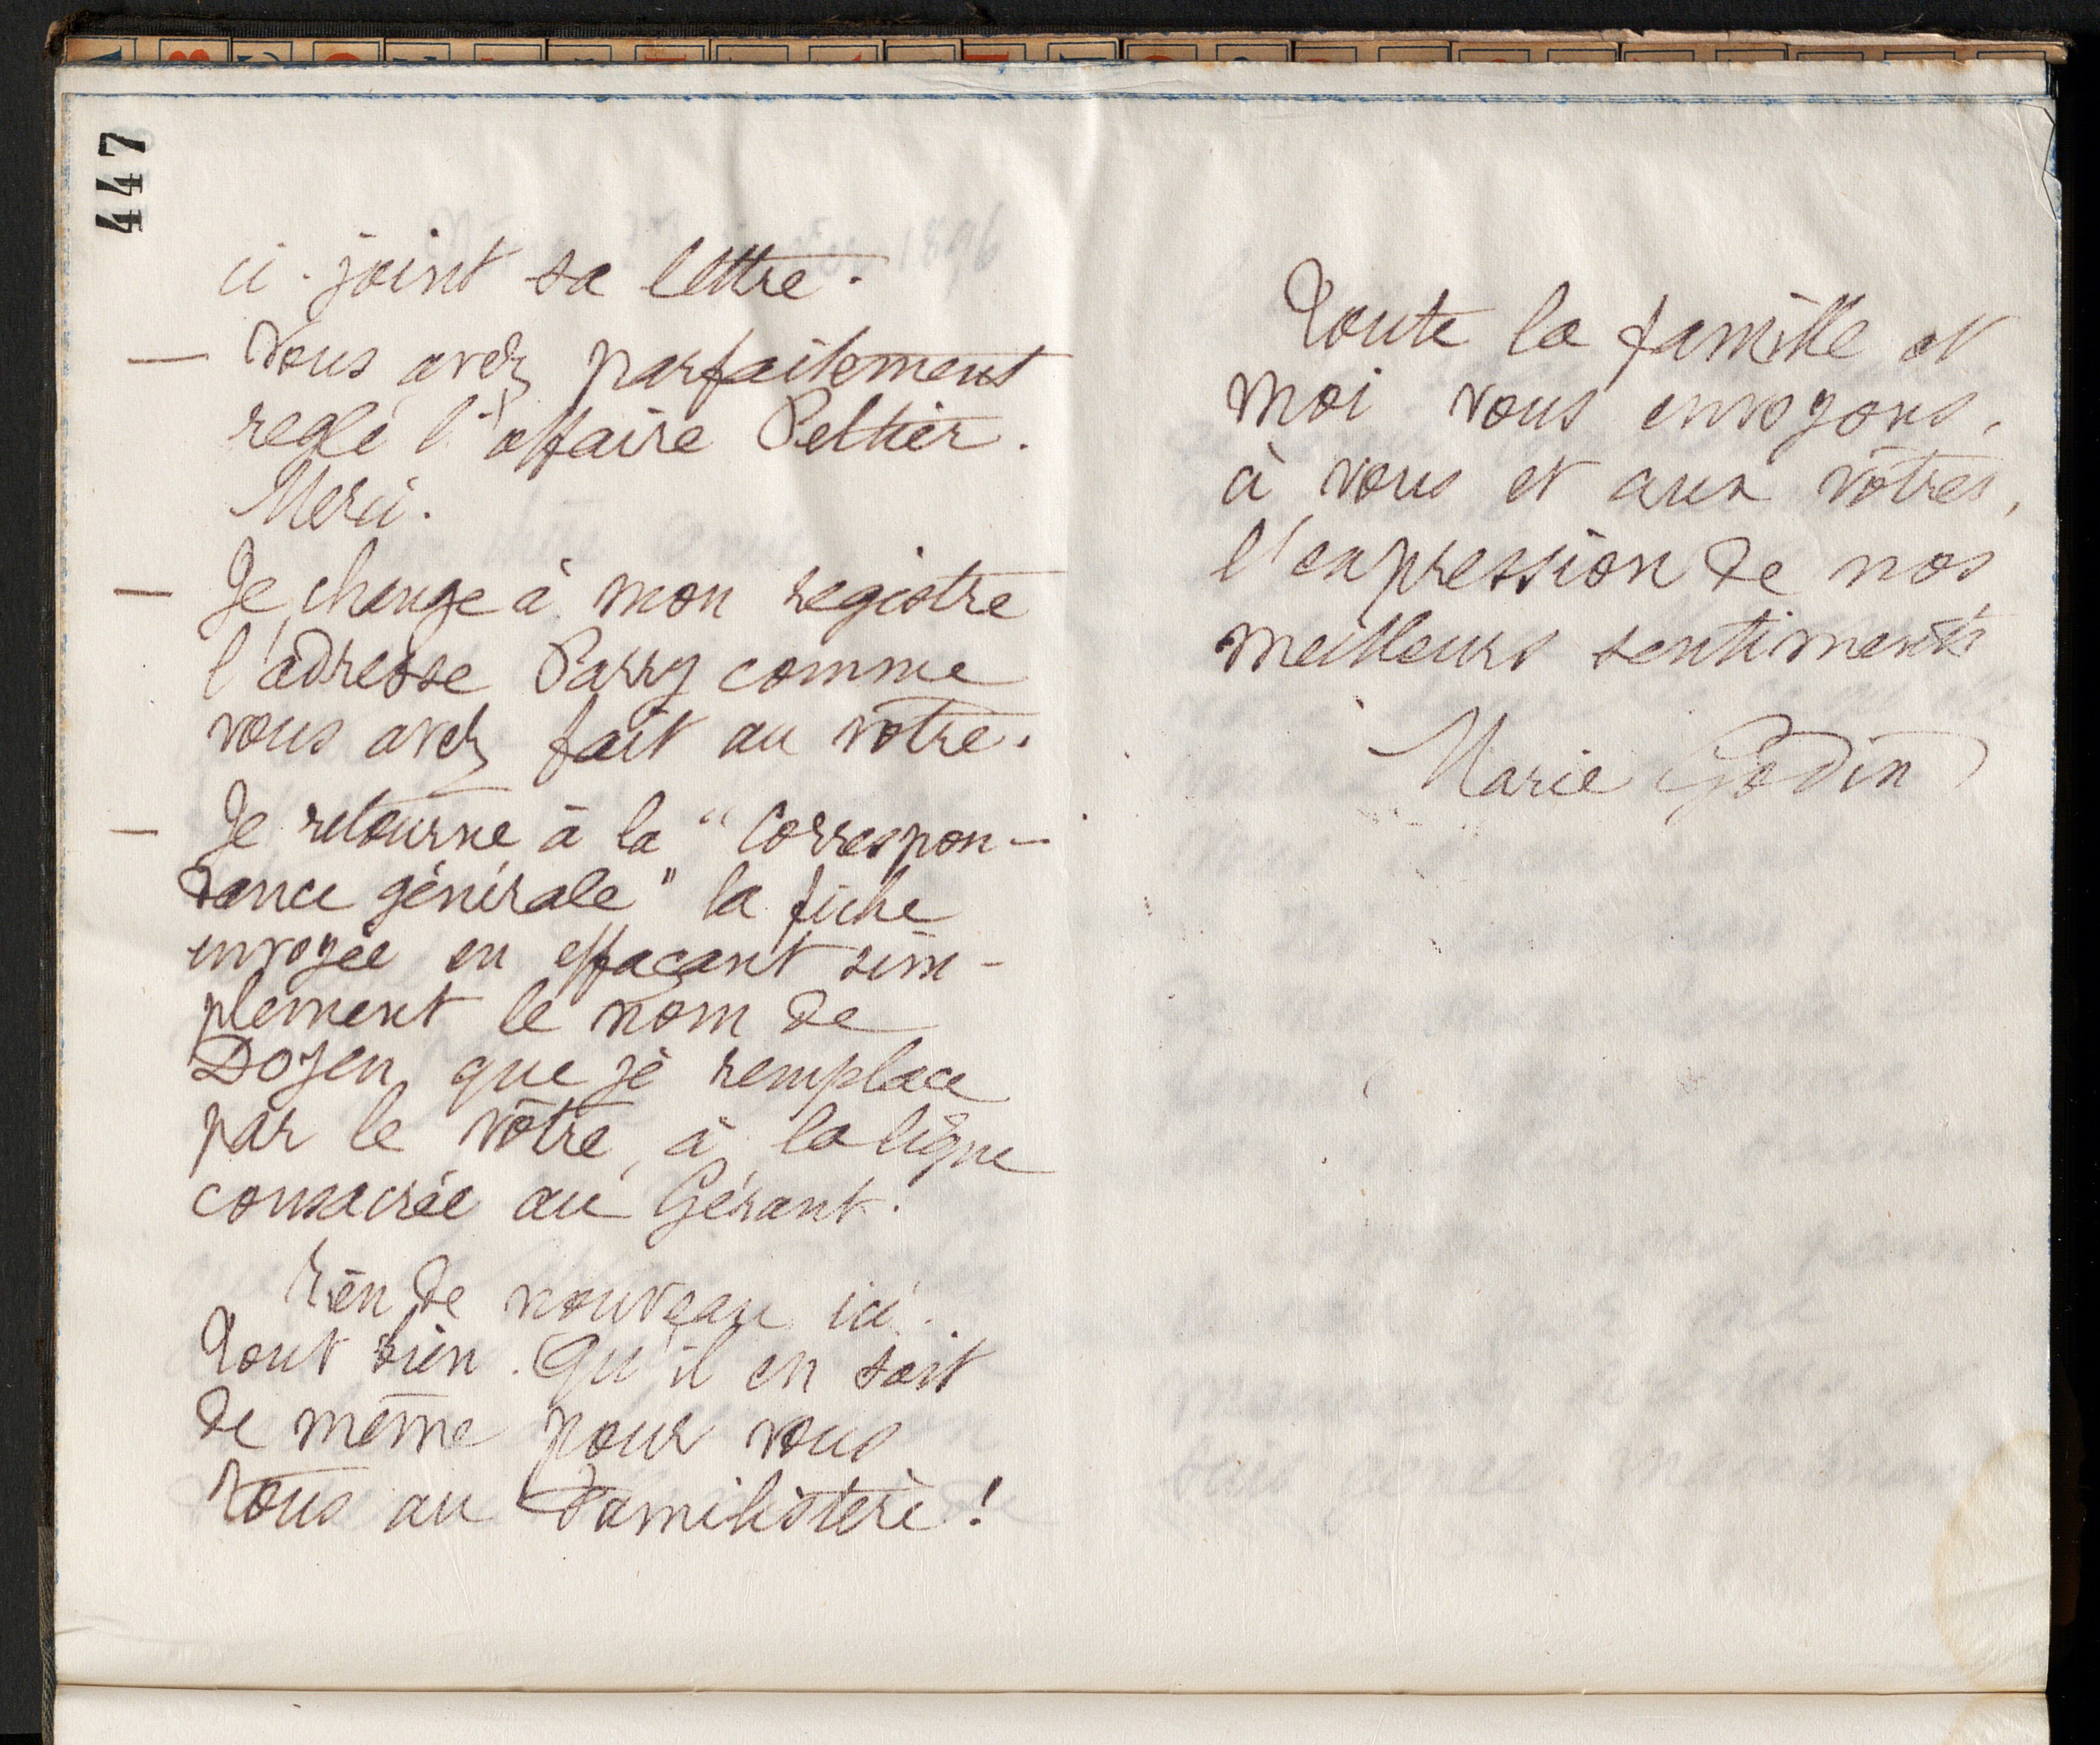 447
ci-joint sa lettre.
— Vous avez parfaitement
reglé l'affaire Peltier.
Merci.
— Je change à mon registre
l'adresse Parry comme
vous avez fait au vôtre.
— Je retourne à la "Correspon-
dance générale" la fiche
envoyée en effaçant sim-
plement le nom de
Doyen que je remplace
par le vôtre, à la ligne
consacrée au Gérant.
Rien de nouveau ici.
Tout bien. Qu'il en soit
de même pour vous
tous au Familistère!
Toute la famille et
moi vous envoyons,
à vous et aux vôtres,
l'expression de nos
meilleurs sentiments
Marie Godin